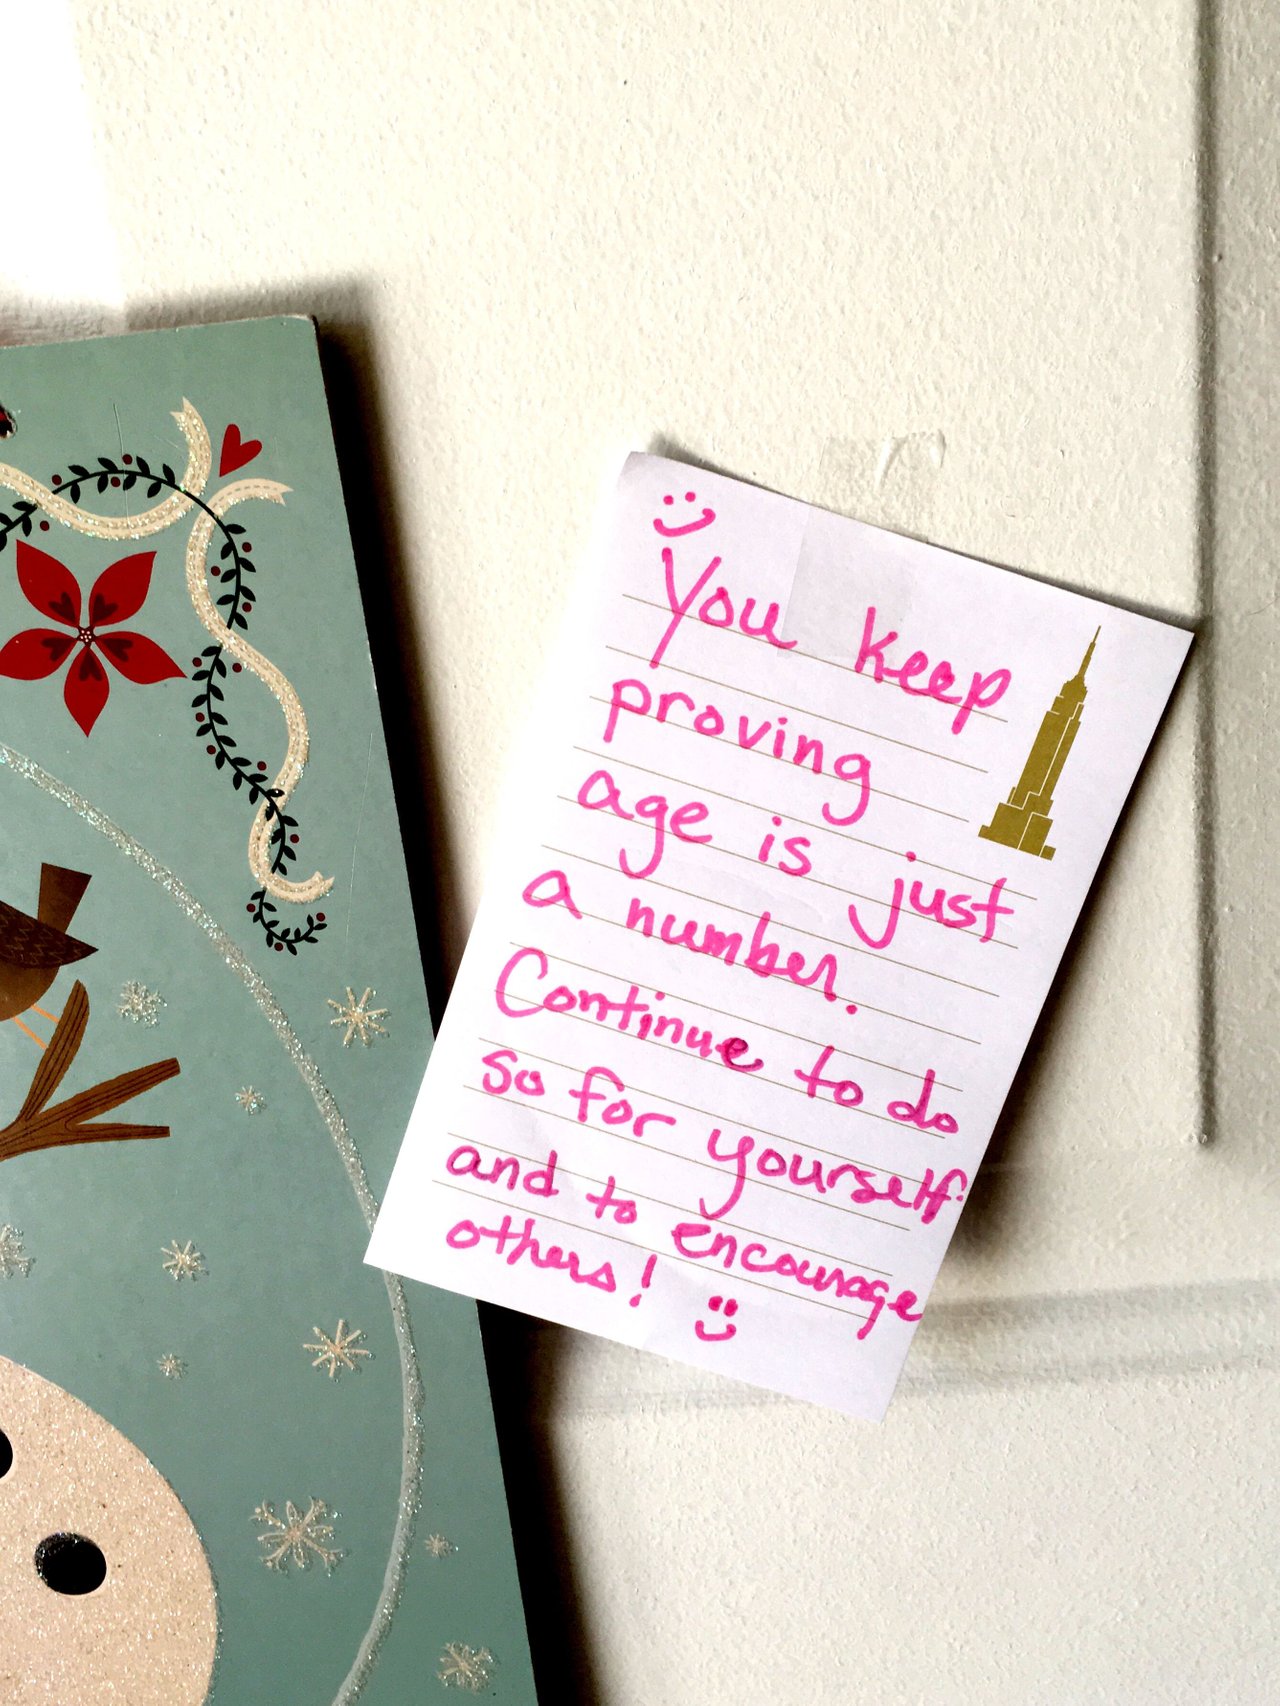 You keep
proving
age is just
a number.
Continue to do
so for yourself
and to encourage
others!